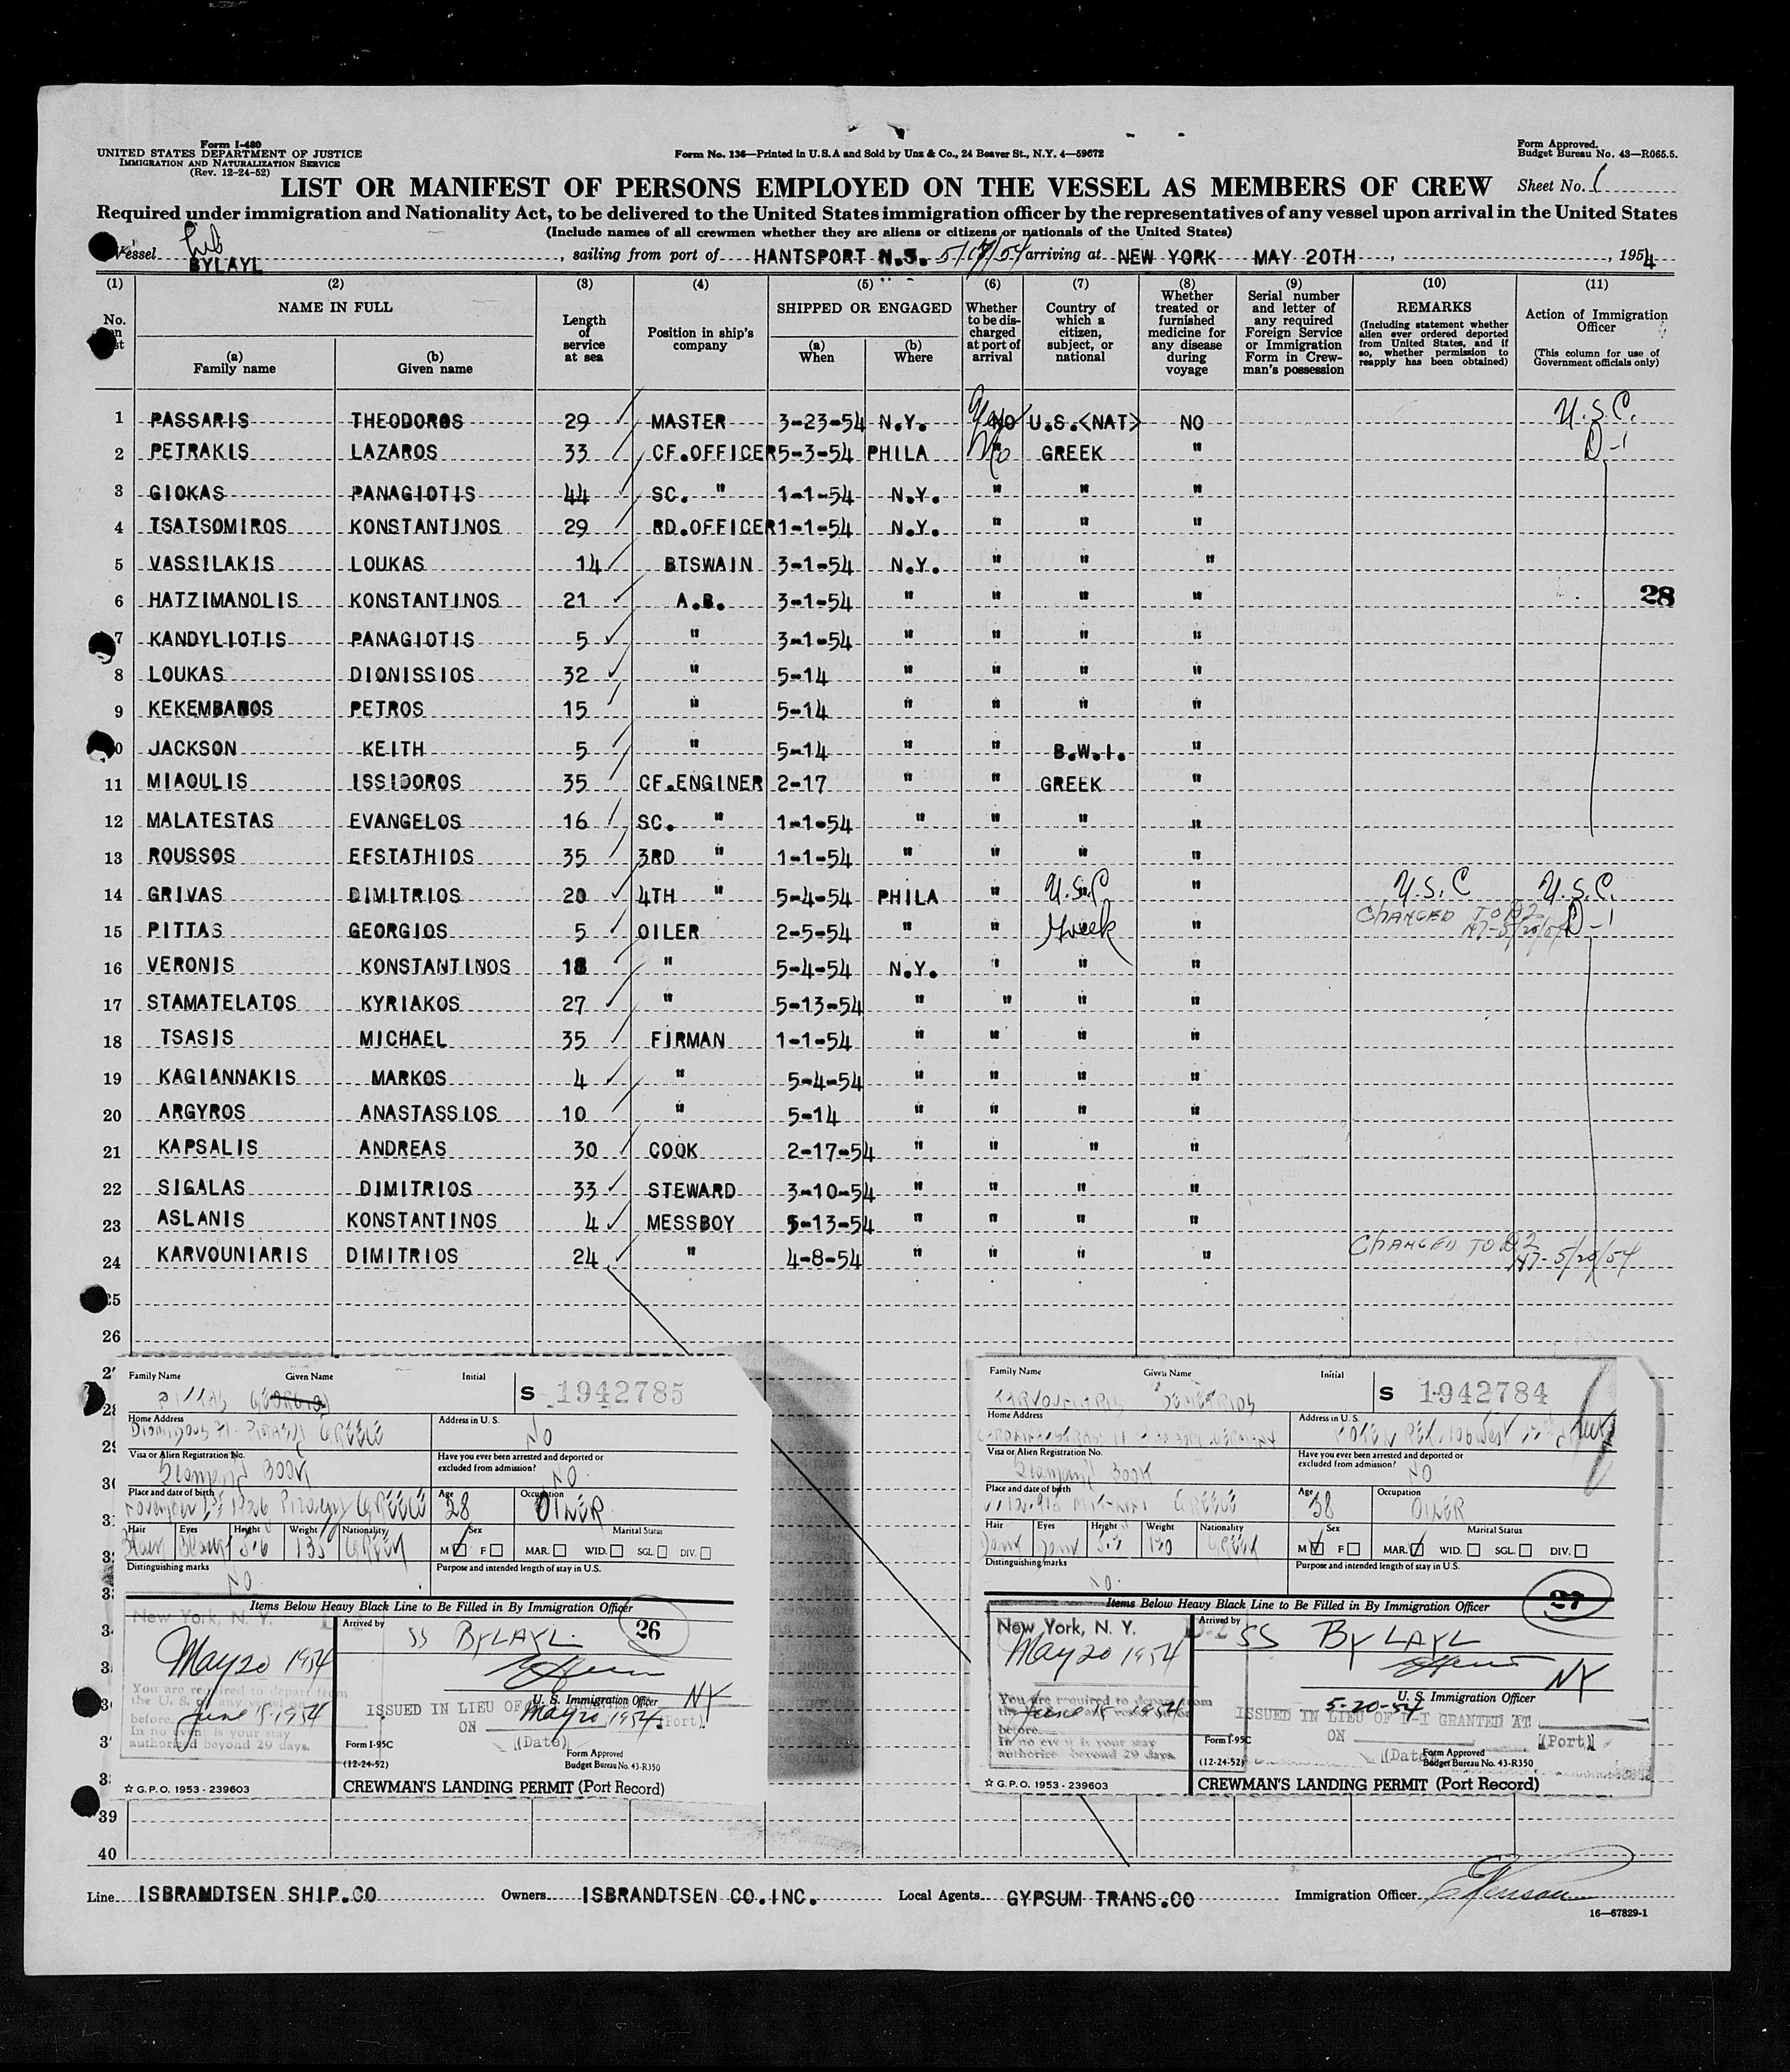 Form I-480
UNITED STATES DEPARTMENT OF JUSTICE
IMMIGRATION AND NATURALIZATION SERVICE
(Rev. 12-24-52)
Form No. 136—Printed in U.S.A and Sold by Unz & Co., 24 Beaver St., N.Y. 4—59672
Form Approved.
Budget Bureau No. 43—R065.5.
LIST OR MANIFEST OF PERSONS EMPLOYED ON THE VESSEL AS MEMBERS OF CREW
Sheet No. 1
Required under immigration and Nationality Act, to be delivered to the United States immigration officer by the representatives of any vessel upon arrival in the United States
(Include names of all crewmen whether they are aliens or citizens or nationals of the United States)
Vessel BYLAYL, sailing from port of HANTSPORT N.S. 5/17/54 arriving at NEW YORK MAY 20TH, 1954
(1) (2) (3) (4) (5) (6) (7) (8) (9) (10) (11)
No.
NAME IN FULL
(a) Family name
(b) Given name
Length of service at sea
Position in ship's company
SHIPPED OR ENGAGED
(a) When
(b) Where
Whether to be discharged at port of arrival
Country of which a citizen, subject, or national
Whether treated or furnished medicine for any disease during voyage
Serial number and letter of any required Foreign Service or Immigration Form in Crewman's possession
REMARKS
(Including statement whether alien ever ordered deported from United States, and if so, whether permission to reapply has been obtained)
Action of Immigration Officer
(This column for use of Government officials only)
1 PASSARIS THEODOROS 29 MASTER 3-23-54 N.Y. NO U.S.<NAT> NO U.S.C.
2 PETRAKIS LAZAROS 33 CF.OFFICER 5-3-54 PHILA No GREEK " D-1
3 GIOKAS PANAGIOTIS 44 SC. " 1-1-54 N.Y. " " "
4 TSATSOMIROS KONSTANTINOS 29 RD.OFFICER 1-1-54 N.Y. " " "
5 VASSILAKIS LOUKAS 14 BTSWAIN 3-1-54 N.Y. " " "
6 HATZIMANOLIS KONSTANTINOS 21 A.B. 3-1-54 " " " " 28
7 KANDYLIOTIS PANAGIOTIS 5 " 3-1-54 " " " "
8 LOUKAS DIONISSIOS 32 " 5-14 " " " "
9 KEKEMBANOS PETROS 15 " 5-14 " " " "
10 JACKSON KEITH 5 " 5-14 " " B.W.I. "
11 MIAOULIS ISSIDOROS 35 CF.ENGINER 2-17 " " GREEK "
12 MALATESTAS EVANGELOS 16 SC. " 1-1-54 " " " "
13 ROUSSOS EFSTATHIOS 35 3RD " 1-1-54 " " "
14 GRIVAS DIMITRIOS 20 4TH " 5-4-54 PHILA " U.S.C " U.S.C U.S.C.
15 PITTAS GEORGIOS 5 OILER 2-5-54 " " Greek " CHANGED TO D2 5/20/54 D-1
16 VERONIS KONSTANTINOS 18 " 5-4-54 N.Y. " " "
17 STAMATELATOS KYRIAKOS 27 " 5-13-54 " " " "
18 TSASIS MICHAEL 35 FIRMAN 1-1-54 " " " "
19 KAGIANNAKIS MARKOS 4 " 5-4-54 " " " "
20 ARGYROS ANASTASSIOS 10 " 5-14 " " " "
21 KAPSALIS ANDREAS 30 COOK 2-17-54 " " " "
22 SIGALAS DIMITRIOS 33 STEWARD 3-10-54 " " " "
23 ASLANIS KONSTANTINOS 4 MESSBOY 5-13-54 " " " "
24 KARVOUNIARIS DIMITRIOS 24 " 4-8-54 " " " " CHANGED TO D2 5/20/54
25
26
Family Name Given Name Initial S 1942785
PITTAS GEORGIOS
Home Address Address in U. S.
GREECE NO
Visa or Alien Registration No. Have you ever been arrested and deported or excluded from admission?
Seaman's BOOK NO.
Place and date of birth Age Occupation
November 1926 GREECE 28 OILER
Hair Eyes Height Weight Nationality Sex Marital Status
5.6 135 GREEK M F MAR. WID. SGL. DIV.
Distinguishing marks Purpose and intended length of stay in U.S.
NO.
Items Below Heavy Black Line to Be Filled in By Immigration Officer
New York, N. Y. Arrived by SS BYLAYL 26
May 20 1954
You are required to depart from the U. S. on any vessel on or before June 18 1954
In no event is your stay authorized beyond 29 days.
U. S. Immigration Officer NY
ISSUED IN LIEU OF
ON May 20 1954 (Port)
(Date)
Form I-95C
(12-24-52)
Form Approved
Budget Bureau No. 43-R350
☆ G.P.O. 1953 - 239603 CREWMAN'S LANDING PERMIT (Port Record)
Family Name Given Name Initial S 1942784
KARVOUNIARIS DEMETRIOS
Home Address Address in U. S.
Visa or Alien Registration No. Have you ever been arrested and deported or excluded from admission?
Seaman's BOOK NO
Place and date of birth Age Occupation
GREECE 38 OILER
Hair Eyes Height Weight Nationality Sex Marital Status
GREEK M F MAR. WID. SGL. DIV.
Distinguishing marks Purpose and intended length of stay in U.S.
NO.
Items Below Heavy Black Line to Be Filled in By Immigration Officer
New York, N. Y. Arrived by SS BYLAYL 27
May 20 1954
You are required to depart from
before June 18 1954
In no event is your stay
authorized beyond 29 days.
U. S. Immigration Officer NY
5-20-54
ISSUED IN LIEU OF I-I GRANTED AT
ON (Port)
(Date)
Form I-95C
(12-24-52)
Form Approved
Budget Bureau No. 43-R350
☆ G.P.O. 1953 - 239603 CREWMAN'S LANDING PERMIT (Port Record)
39
40
Line ISBRAMDTSEN SHIP.CO Owners ISBRANDTSEN CO.INC. Local Agents GYPSUM TRANS.CO Immigration Officer
16—67829-1